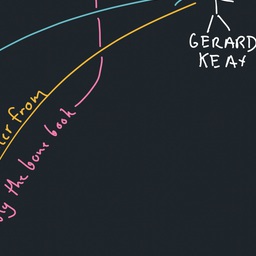 GERARD
KEAY
from
the bone book